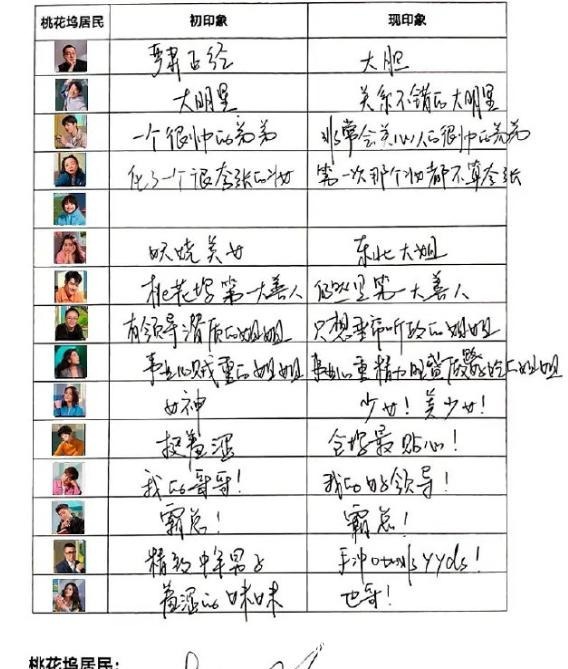 桃花坞居民 初印象 现印象
严肃正经 大胆
大明星 关系不错的大明星
一个很帅的弟弟 非常会关心人的很帅的弟弟
化了一个很夸张的妆 第一次那个妆都不算夸张
妖娆美女 东北大姐
桃花坞第一大善人 第一大善人
有领导潜质的姐姐 只想 的姐姐
事业心贼重的姐姐 事业心重精力旺盛 姐姐
女神 少女!美少女!
挺羞涩 全坞最贴心!
我的哥哥! 我的好领导!
霸总! 霸总!
精致中年男子 手冲 yyds!
羞涩的妹妹 也哥!
桃花坞居民: